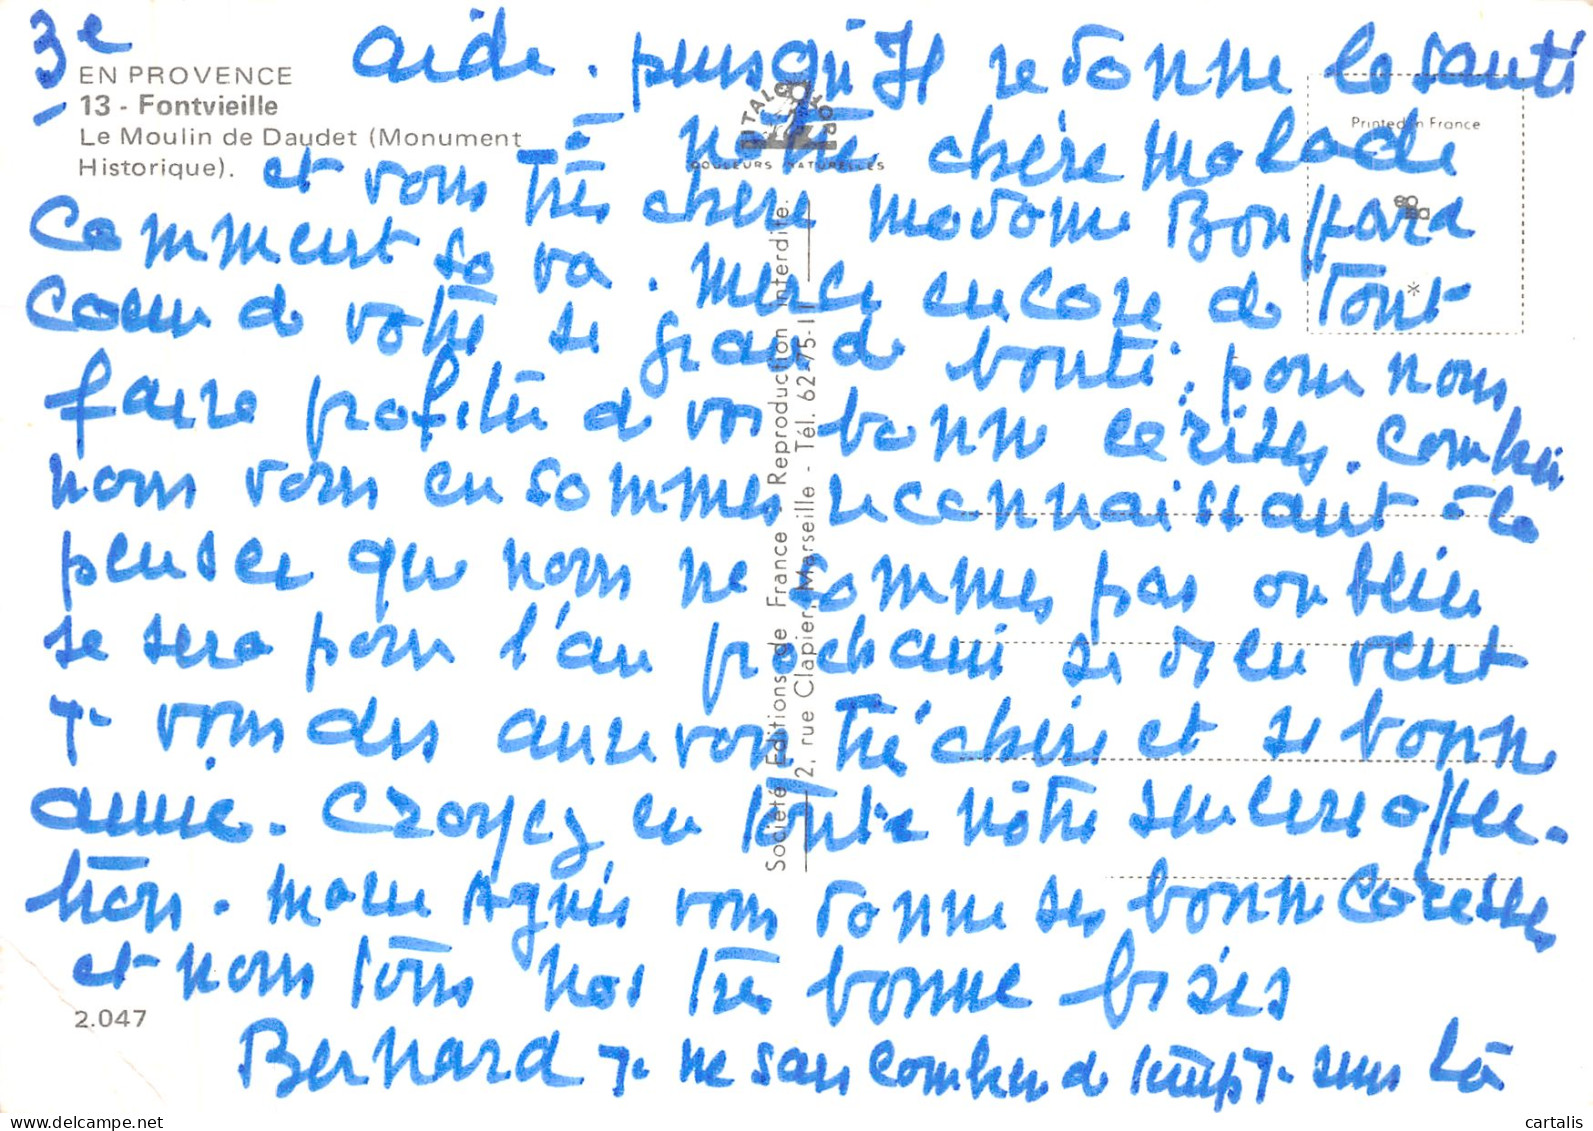 3e
EN PROVENCE
13 - Fontvieille
Le Moulin de Daudet (Monument
Historique).
Printed in France
COULEURS NATURELLES
aide. puisqu'Il redonne la santé
à notre chère malade
et vous très chère madame Bouffard
comment sa va. merci encore de tout
coeur de votre se grande bonté. pour nous
faire profité de vos bonne cerises. combien
nous vous en sommes reconnaissant à la
penser que nous ne sommes pas oublier
se sera pour l'an prochain si dieu veut
je vous dis aurevoir très chère et si bonne
amie. Croyez en toute nôtre sincere affec-
tion. marie Agnès vous donne ses bonne caresses
et nous tous nos très bonne bises
Bernard je ne sais combien de temps je suis là
2.047
Société Editions de France - Reproduction interdite.
2, rue Clapier, Marseille - Tél. 62-75-11
cartalis
delcampe.net